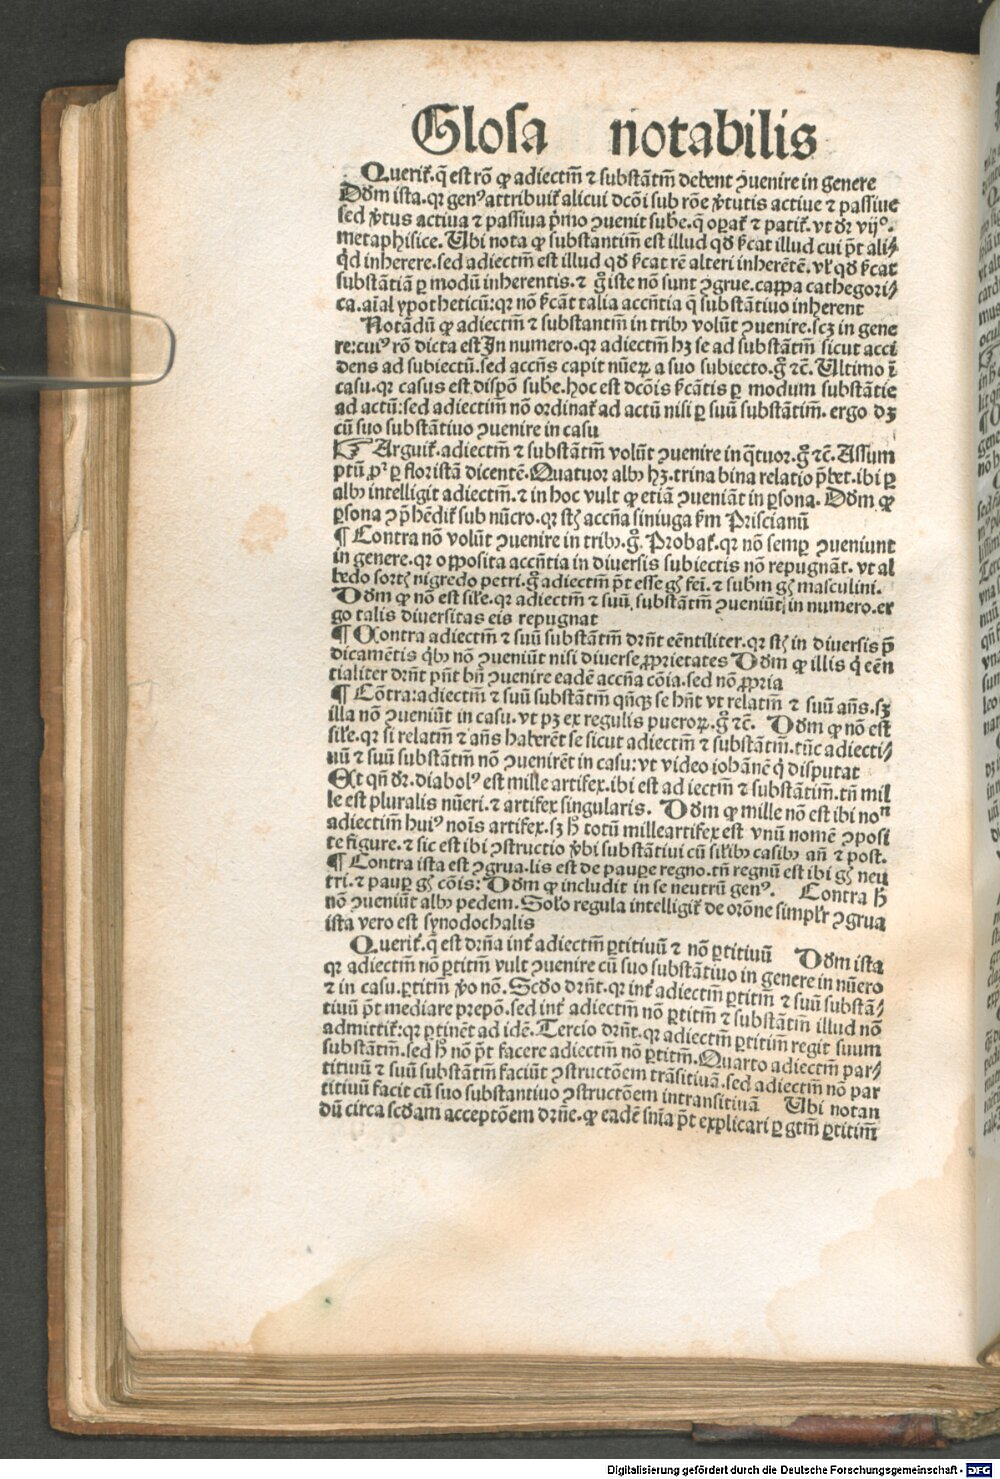 Glosa notabilis
Querit᷑. q̄ est rō ꝙ adiectiū ⁊ substātiū debent ꝯuenire in genere
Dōm ista. qꝛ genꝰ attribuit᷑ alicui dcōi sub rōe v̓tutis actiue ⁊ passiue
sed v̓tus actiua ⁊ passiua p̄mo ꝯuenit sube. q̄ oꝑat᷑ ⁊ patit᷑. vt dr̄ vijº.
metaphisice. Ubi nota ꝙ substantiuū est illud qd̄ ſc̄at illud cui p̄t ali⸗
qd̄ inherere. sed adiectiū est illud qd̄ ſc̄at rē alteri inherētē. vl̓ qd̄ ſc̄at
substātiā ꝑ modū inherentis. ⁊ g̊ iste nō sunt ꝯgrue. cappa cathegori⸗
ca. aīal ypotheticū: qꝛ nō ſc̄āt talia accn̄tia q̄ substātiuo inherent
Notādū ꝙ adiectiū ⁊ substantiū in tribꝰ volūt ꝯuenire. scꝫ in gene
re: cuiꝰ rō dicta est In numero. qꝛ adiectiū hꝫ se ad substātiū sicut acci
dens ad subiectū. sed accn̄s capit nūeꝝ a suo subiecto. g̊ ⁊c̄. Ultimo ī
casu. qꝛ casus est dispō sube. hoc est dcōis ſc̄ātis ꝑ modum substātie
ad actū: sed adiectiū nō ordinat᷑ ad actū nisi ꝑ suū substātiū. ergo dꝫ
cū suo substātiuo ꝯuenire in casu
☞ Arguit᷑. adiectiū ⁊ substātiū volūt ꝯuenire in q̄tuor. g̊ ⁊c̄. Assum
ptū ꝓꝛ ꝑ floristā dicentē. Quatuor albꝰ hꝫ. trina bina relatio p̄bet. ibi ꝑ
albꝰ intelligit adiectiū. ⁊ in hoc vult ꝙ etiā ꝯueniāt in ꝑsona. Dōm ꝙ
ꝑsona ꝯp̄hēdit᷑ sub nūero. qꝛ st̄ accn̄a siniuga ſm Priscianū
¶ Contra nō volūt ꝯuenire in tribꝰ. g̊. Probat᷑. qꝛ nō semꝑ ꝯueniunt
in genere. qꝛ opposita accn̄tia in diuersis subiectis nō repugnāt. vt al
bedo sort̄ nigredo petri. g̊ adiectiū p̄t esse gn̄ fei. ⁊ subm gn̄ masculini.
Dōm ꝙ nō est sil̓e. qꝛ adiectiū ⁊ suū substātiū ꝯueniūt in numero. er
go talis diuersitas eis repugnat
¶ Contra adiectiū ⁊ suū substātiū drn̄t eēntiliter. qꝛ st̄ in diuersis p̄
dicamētis qb̓ nō ꝯueniūt nisi diuerse ꝓprietates Dōm ꝙ illis q̄ eēn
tialiter drn̄t pn̄t bn̄ ꝯuenire eadē accn̄a cōia. sed nō ꝓpria
¶ Cōtra: adiectiū ⁊ suū substātiū qn̄qꝫ se hn̄t vt relatiū ⁊ suū an̄s. sꝫ
illa nō ꝯueniūt in casu. vt pꝫ ex regulis pueroꝝ. g̊ ⁊c̄. Dōm ꝙ nō est
sil̓e. qꝛ si relatiū ⁊ an̄s haberēt se sicut adiectiū ⁊ substātiū. tūc adiecti⸗
uū ⁊ suū substātiū nō ꝯuenirēt in casu: vt video iohānē q̄ disputat
Et qn̄ dr̄. diabolꝰ est mille artifex. ibi est ad iectiū ⁊ substātiū. tn̄ mil
le est pluralis nūeri. ⁊ artifex singularis. Dōm ꝙ mille nō est ibi noⁿ
adiectiū huiꝰ nois artifex. sꝫ h̄ totū milleartifex est vnū nomē ꝯposi
te figure. ⁊ sic est ibi ꝯstructio v̓bi substātiui cū sil̓ibꝰ casibꝰ an̄ ⁊ post.
¶ Contra ista est ꝯgrua. lis est de pauꝑe regno. tn̄ regnū est ibi gn̄ neu
tri. ⁊ pauꝑ gn̄ cōis: Dōm ꝙ includit in se neutrū genꝰ. Contra h̄
nō ꝯueniūt albꝰ pedem. Sol̓o regula intelligit᷑ de orōne simpl̓r ꝯgrua
ista vero est synodochalis
Querit᷑. q̄ est drn̄a int̓ adiectiū ꝑtitiuū ⁊ nō ꝑtitiuū Dōm ista
qꝛ adiectiū nō ꝑtitiū vult ꝯuenire cū suo substātiuo in genere in nūero
⁊ in casu. ꝑtitiū v̓o nō. Scd̄o drn̄t. qꝛ int̓ adiectiū ꝑtitiū ⁊ suū substā⸗
tiuū p̄t mediare prepō. sed int̓ adiectiū nō ꝑtitiū ⁊ substātiū illud nō
admittit᷑: qꝛ ꝑtinēt ad idē. Tercio drn̄t. qꝛ adiectiū ꝑtitiū regit suum
substātiū. sed h̄ nō p̄t facere adiectiū nō ꝑtitiū. Quarto adiectiū par⸗
titiuū ⁊ suū substātiū faciūt ꝯstructōem trāsitiuā. sed adiectiū nō par
titiuū facit cū suo substantiuo ꝯstructōem intransitiuā Ubi notan
dū circa scd̄am acceptōem drn̄e. ꝙ eadē snīa p̄t explicari ꝑ gtiū ꝑtitiū
Digitalisierung gefördert durch die Deutsche Forschungsgemeinschaft - DFG